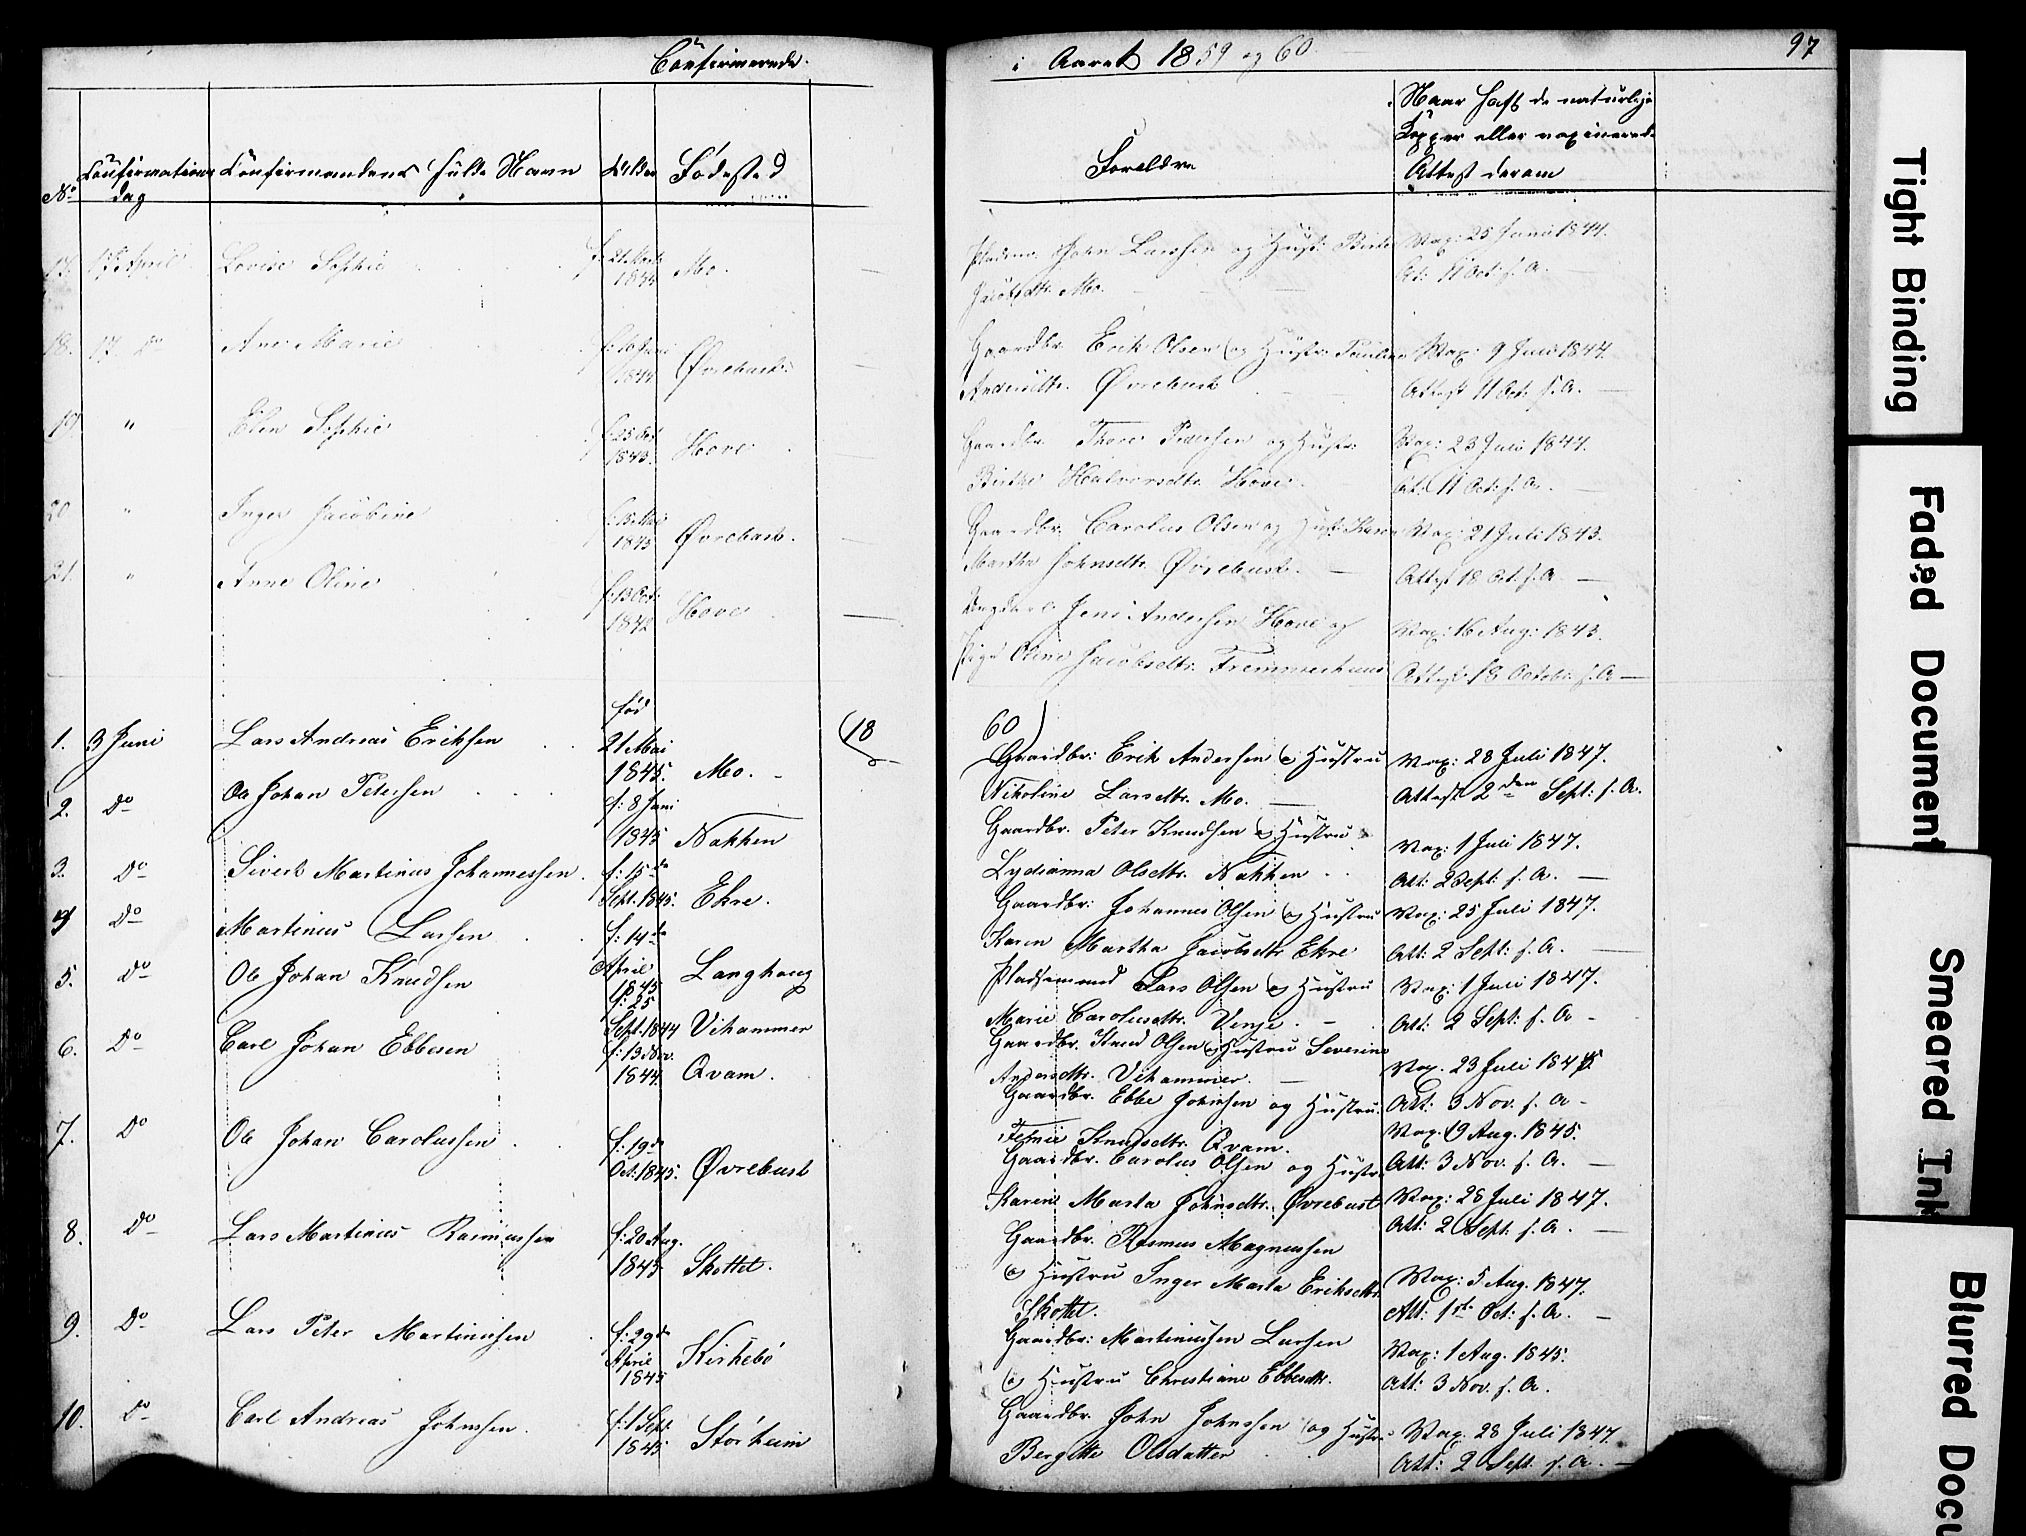 Confirmerede
i Aaret 1859 og 60.
97
No
Confirmations dag
Confirmandens fulde Navn
Alder
Fødested
Foreldre
Naar haft de naturlige Kopper eller vaxinerede Attest derom
17. 17 April Lovise Sophie f: 21 1844 Mo.
Pladsm. John Larssen og Hust: Birte Jacobsdtr. Mo.
Vax: 25 Juni 1844.
At: 11 Oct: s. A.
18. 17. Do Ane Marie f: 16 Juni 1844 Øvrebust
Gaardbr. Erik Olsen og Hustr: Pauline Andersdtr. Øvrebust
Vax: 9 Juli 1844.
Attest 11 Oct. s. A.
19 " Elen Sophie f: 25 Oct 1843. Hove
Gaardbr. Thore Pedersen og Hustr: Birthe Halvorsdtr. Hove.
Vax: 23 Juli 1844.
At: 11 Oct: s. A.
20 " Inger Jacobine f: 15 Mai 1843 Øvrebust.
Gaardbr. Carolus Olsen og Hust: Karen Martha Johnsdtr. Øvrebust.
Vax: 21 Juli 1843.
Attest 18 Oct. s. A.
21. " Anne Oline f: 13 Oct: 1842 Hove
Ungkarl Jens Andersen Hove og
Pige Oline Jacobsdtr. Fremmerhuus
Vax: 16 Aug: 1843.
Attest 18 Octobr. s. A
(18 60)
1. 3 Juni Lars Andreas Eriksen
fød 21 Mai 1845. Mo.
Gaardbr: Erik Andersen og Hustru Nikoline Larsdtr. Mo.
Vax: 28 Juli 1847.
Attest 2den Sept: s. A.
2. Do Ole Johan Petersen f: 8 Juni 1845 Nakken
Gaardbr. Peter Knudsen og Hustru Lydianna Olsdtr. Nakken
Vax: 1 Juli 1847.
Att: 2 Sept: s. A.
3. Do Sivert Martinus Johannessen. f: 15de Sept. 1845. Ekre.
Gaardbr: Johannes Olsen og Hustru Karen Martha Jacobsdtr Ekre
Vax: 25 Juli 1847.
Att: 2 Sept: s. A.
4 Do Martinus Larsen f: 14de April 1845 Langhaug
Pladsemand Lars Olsen og Hustru Marie Carolusdtr. Venje.
Vax: 1 Juli 1847.
Att: 2 Sept: s. A.
5. Do Ole Johan Knudsen f: 25 Sept. 1844 Vihammer
Gaardbr. Knud Olsen og Hustru Severine Andersdtr. Vihammer.
Vax. 23 Juli 1845
Att: 3 Nov. s. A
6. Do Carl Johan Ebbesen f: 13 Nov. 1844. Qvam.
Gaardbr. Ebbe Johnsen og Hustru Knudsdtr. Qvam.
Vax. 19 Aug. 1845.
Att: 3 Nov. s. A.
7. Do Ole Johan Carolussen f: 19de Oct. 1845. Øvrebust
Gaardbr. Carolus Olsen og Hustr: Karen Marta Johnsdtr. Øvrebust
Vax: 28 Juli 1847.
Att: 2 Sept: s. A.
8. Do Lars Martinus Rasmussen f: 20 Aug. 1845 Skottet.
Gaardbr. Rasmus Magnussen og Hustru Inger Marta Eriksdtr. Skottet.
Vax: 5 Aug. 1847.
Att: 1ste Oct: s. A.
9. Do Lars Peter Martinussen f: 29de April 1845 Kirkebø
Gaardbr: Martinussen Larsen og Hustru Christiane Ebbesdtr.
Vax: 1 Aug. 1845.
Att: 3 Nov. s. A.
10. Do Carl Andreas Johnssen. f: 1 Sept. 1845 Størheim
Gaardbr. John Johnssen og Hustru Bergitte Olsdatter
Vax. 28 Juli 1847.
Att: 2 Sept. s. A.
Tight Binding
Faded Document
Smeared Ink
Blurred Docu